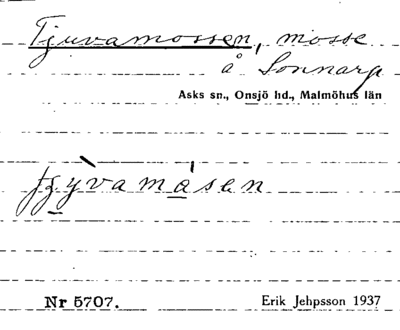 Tjuvamossen, mosse
å Sonnarp
Asks sn., Onsjö hd., Malmöhus län
tʒỳvamásen
Nr 5707. Erik Jehpsson 1937